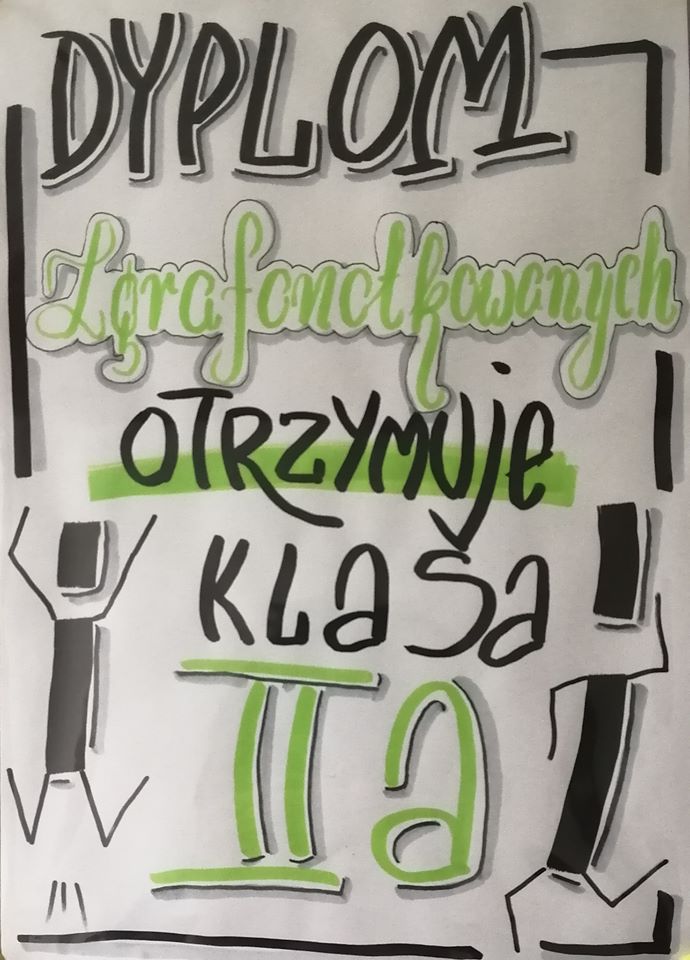 DYPLOM
Zgrafonotkowanych
OTRZYMUje
KLaSa
II a